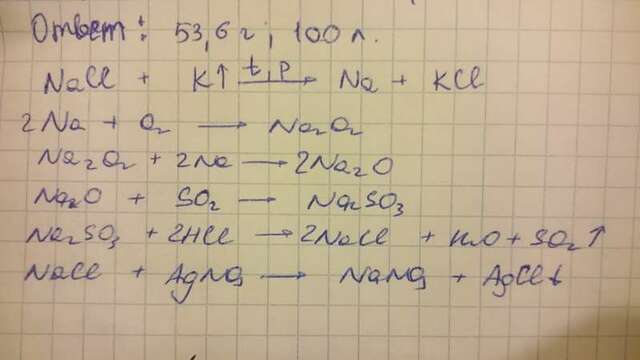 Ответ: 53,6 г; 100 л.
NaCl + K↑ t, p → Na + KCl
2Na + O₂ → Na₂O₂
Na₂O₂ + 2Na → 2Na₂O
Na₂O + SO₂ → Na₂SO₃
Na₂SO₃ + 2HCl → 2NaCl + H₂O + SO₂↑
NaCl + AgNO₃ → NaNO₃ + AgCl↓